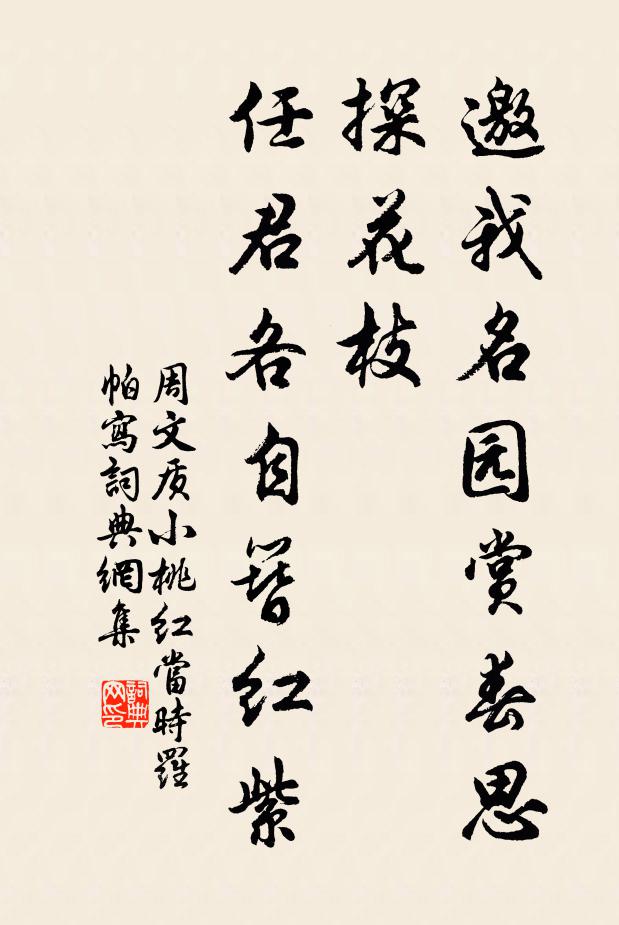 邀我名园赏春思
探花枝
任君各自簪红紫
周文质小桃红當時羅
帕寫詞典網集
詞典
网印